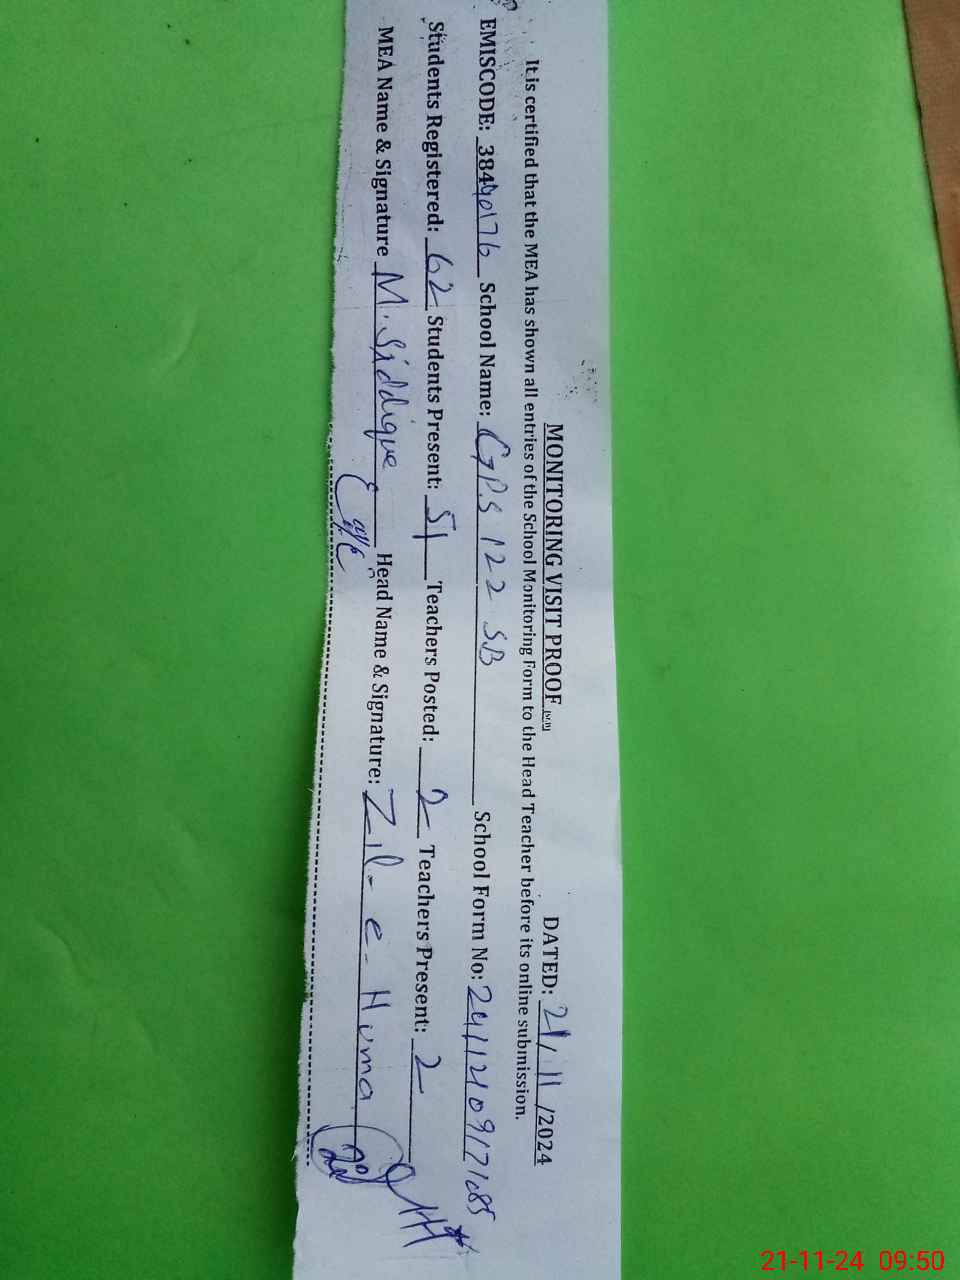 MONITORING VISIT PROOF DATED: 21/11/2024
It is certified that the MEA has shown all entries of the School Monitoring Form to the Head Teacher before its online submission.
EMISCODE: 38440176 School Name: GPS 122 SB School Form No: 24112109171085
Students Registered: 62 Students Present: 51 Teachers Posted: 2 Teachers Present: 2
MEA Name & Signature M. Siddique Head Name & Signature: Zil-e-Huma
21-11-24 09:50